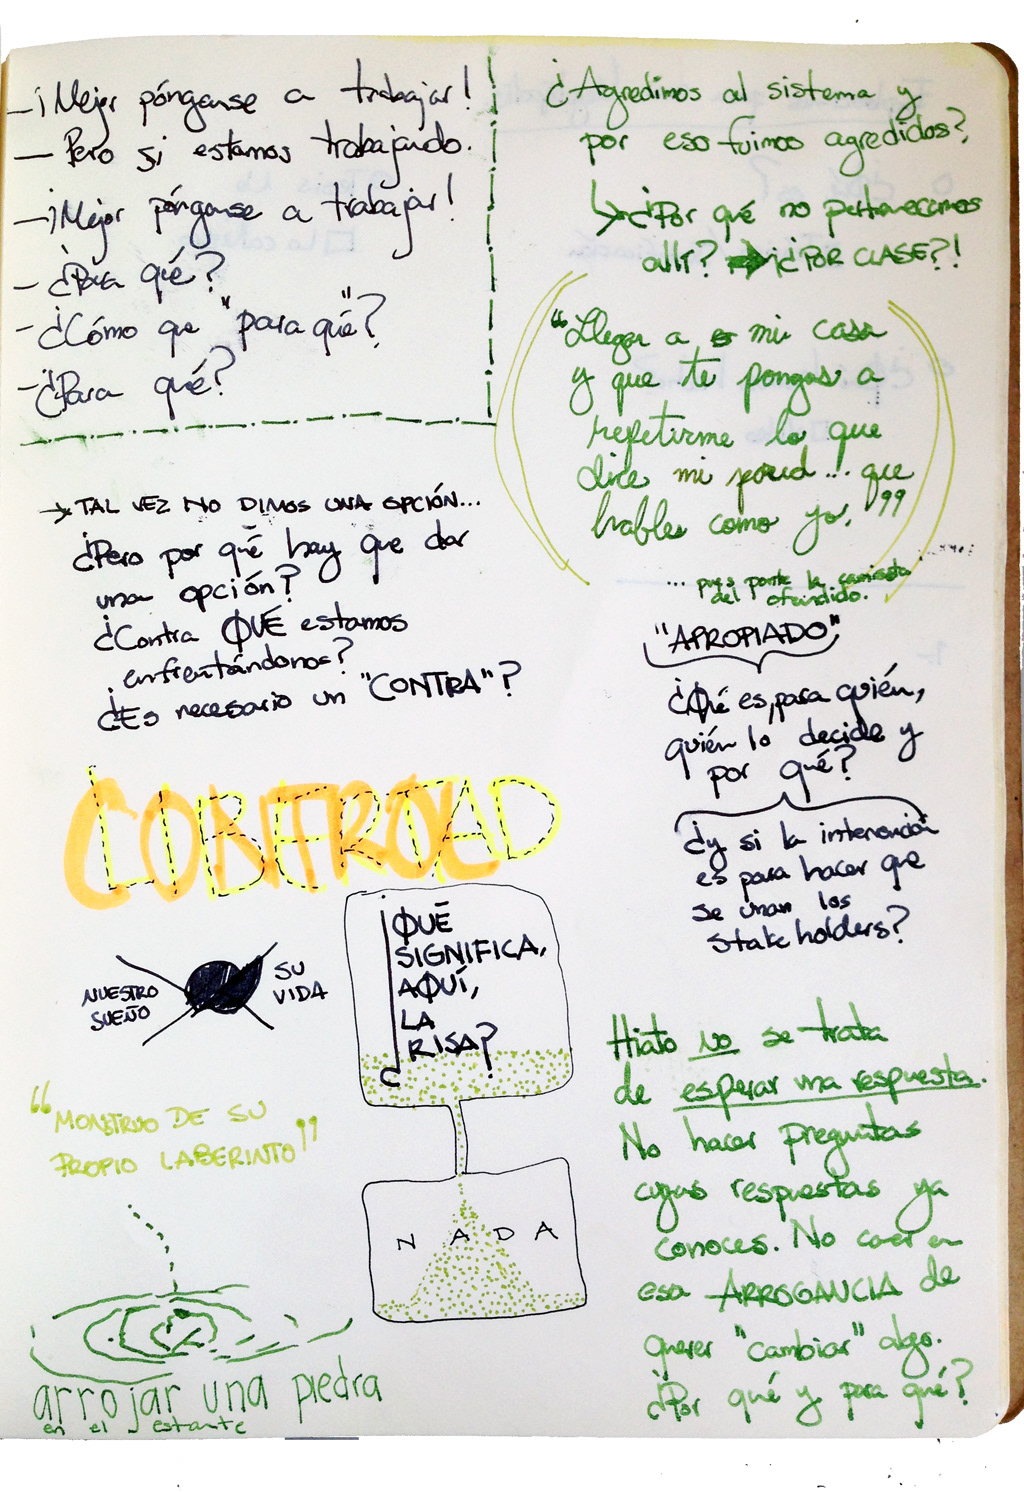 — ¡Mejor pónganse a trabajar!
— Pero si estamos trabajando.
— ¡Mejor pónganse a trabajar!
— ¿Para qué?
— ¿Cómo que "para qué"?
— ¿Para qué?
→ TAL VEZ NO DIMOS UNA OPCIÓN...
¿Pero por qué hay que dar
una opción?
¿Contra QUÉ estamos
enfrentándonos?
¿Es necesario un "CONTRA"?
CONTROL
LIBERTAD
NUESTRO
SUEÑO
SU
VIDA
¿QUÉ
SIGNIFICA,
AQUÍ,
LA
RISA?
NADA
"MONSTRUO DE SU
PROPIO LABERINTO"
arrojar una piedra
en el estante
¿Agredimos al sistema y
por eso fuimos agredidos?
↳ ¿Por qué no pertenecemos
allí? → ¡¿POR CLASE?!
"Llegar a mi casa
y que te pongas a
repetirme lo que
dice mi pared... que
hables como yo."
... pues ponte la camiseta
del ofendido.
"APROPIADO"
¿Qué es, para quién,
quién lo decide y
por qué?
¿y si la intención
es para hacer que
se unan los
stakeholders?
Hiato no se trata
de esperar una respuesta.
No hacer preguntas
cuyas respuestas ya
conoces. No caer en
esa ARROGANCIA de
querer "cambiar" algo.
¿Por qué y para qué?